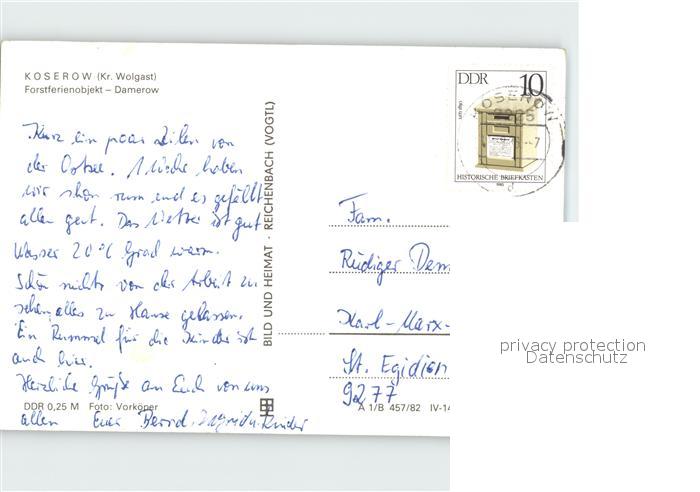 KOSEROW (Kr. Wolgast)
Forstferienobjekt – Damerow
Kurz ein paar Zeilen von
der Ostsee. 1 Woche haben
wir schon rum und es gefällt
allen gut. Das Wetter ist gut
Wasser 20°C Grad warm.
Schön nichts von der Arbeit zu
sehen, alles zu Hause gelassen.
Ein Rummel für die Kinder ist
auch hier.
Herzliche Grüße an Euch von uns
allen Euer Bernd, Ingrid u. Kinder
DDR 0,25 M Foto: Vorköper
BILD UND HEIMAT · REICHENBACH (VOGTL)
A 1/B 457/82 IV-14
DDR 10
HISTORISCHE BRIEFKASTEN
1985
KOSEROW
Fam.
Rüdiger Dem
Karl-Marx-
St. Egidien
9277
privacy protection
Datenschutz